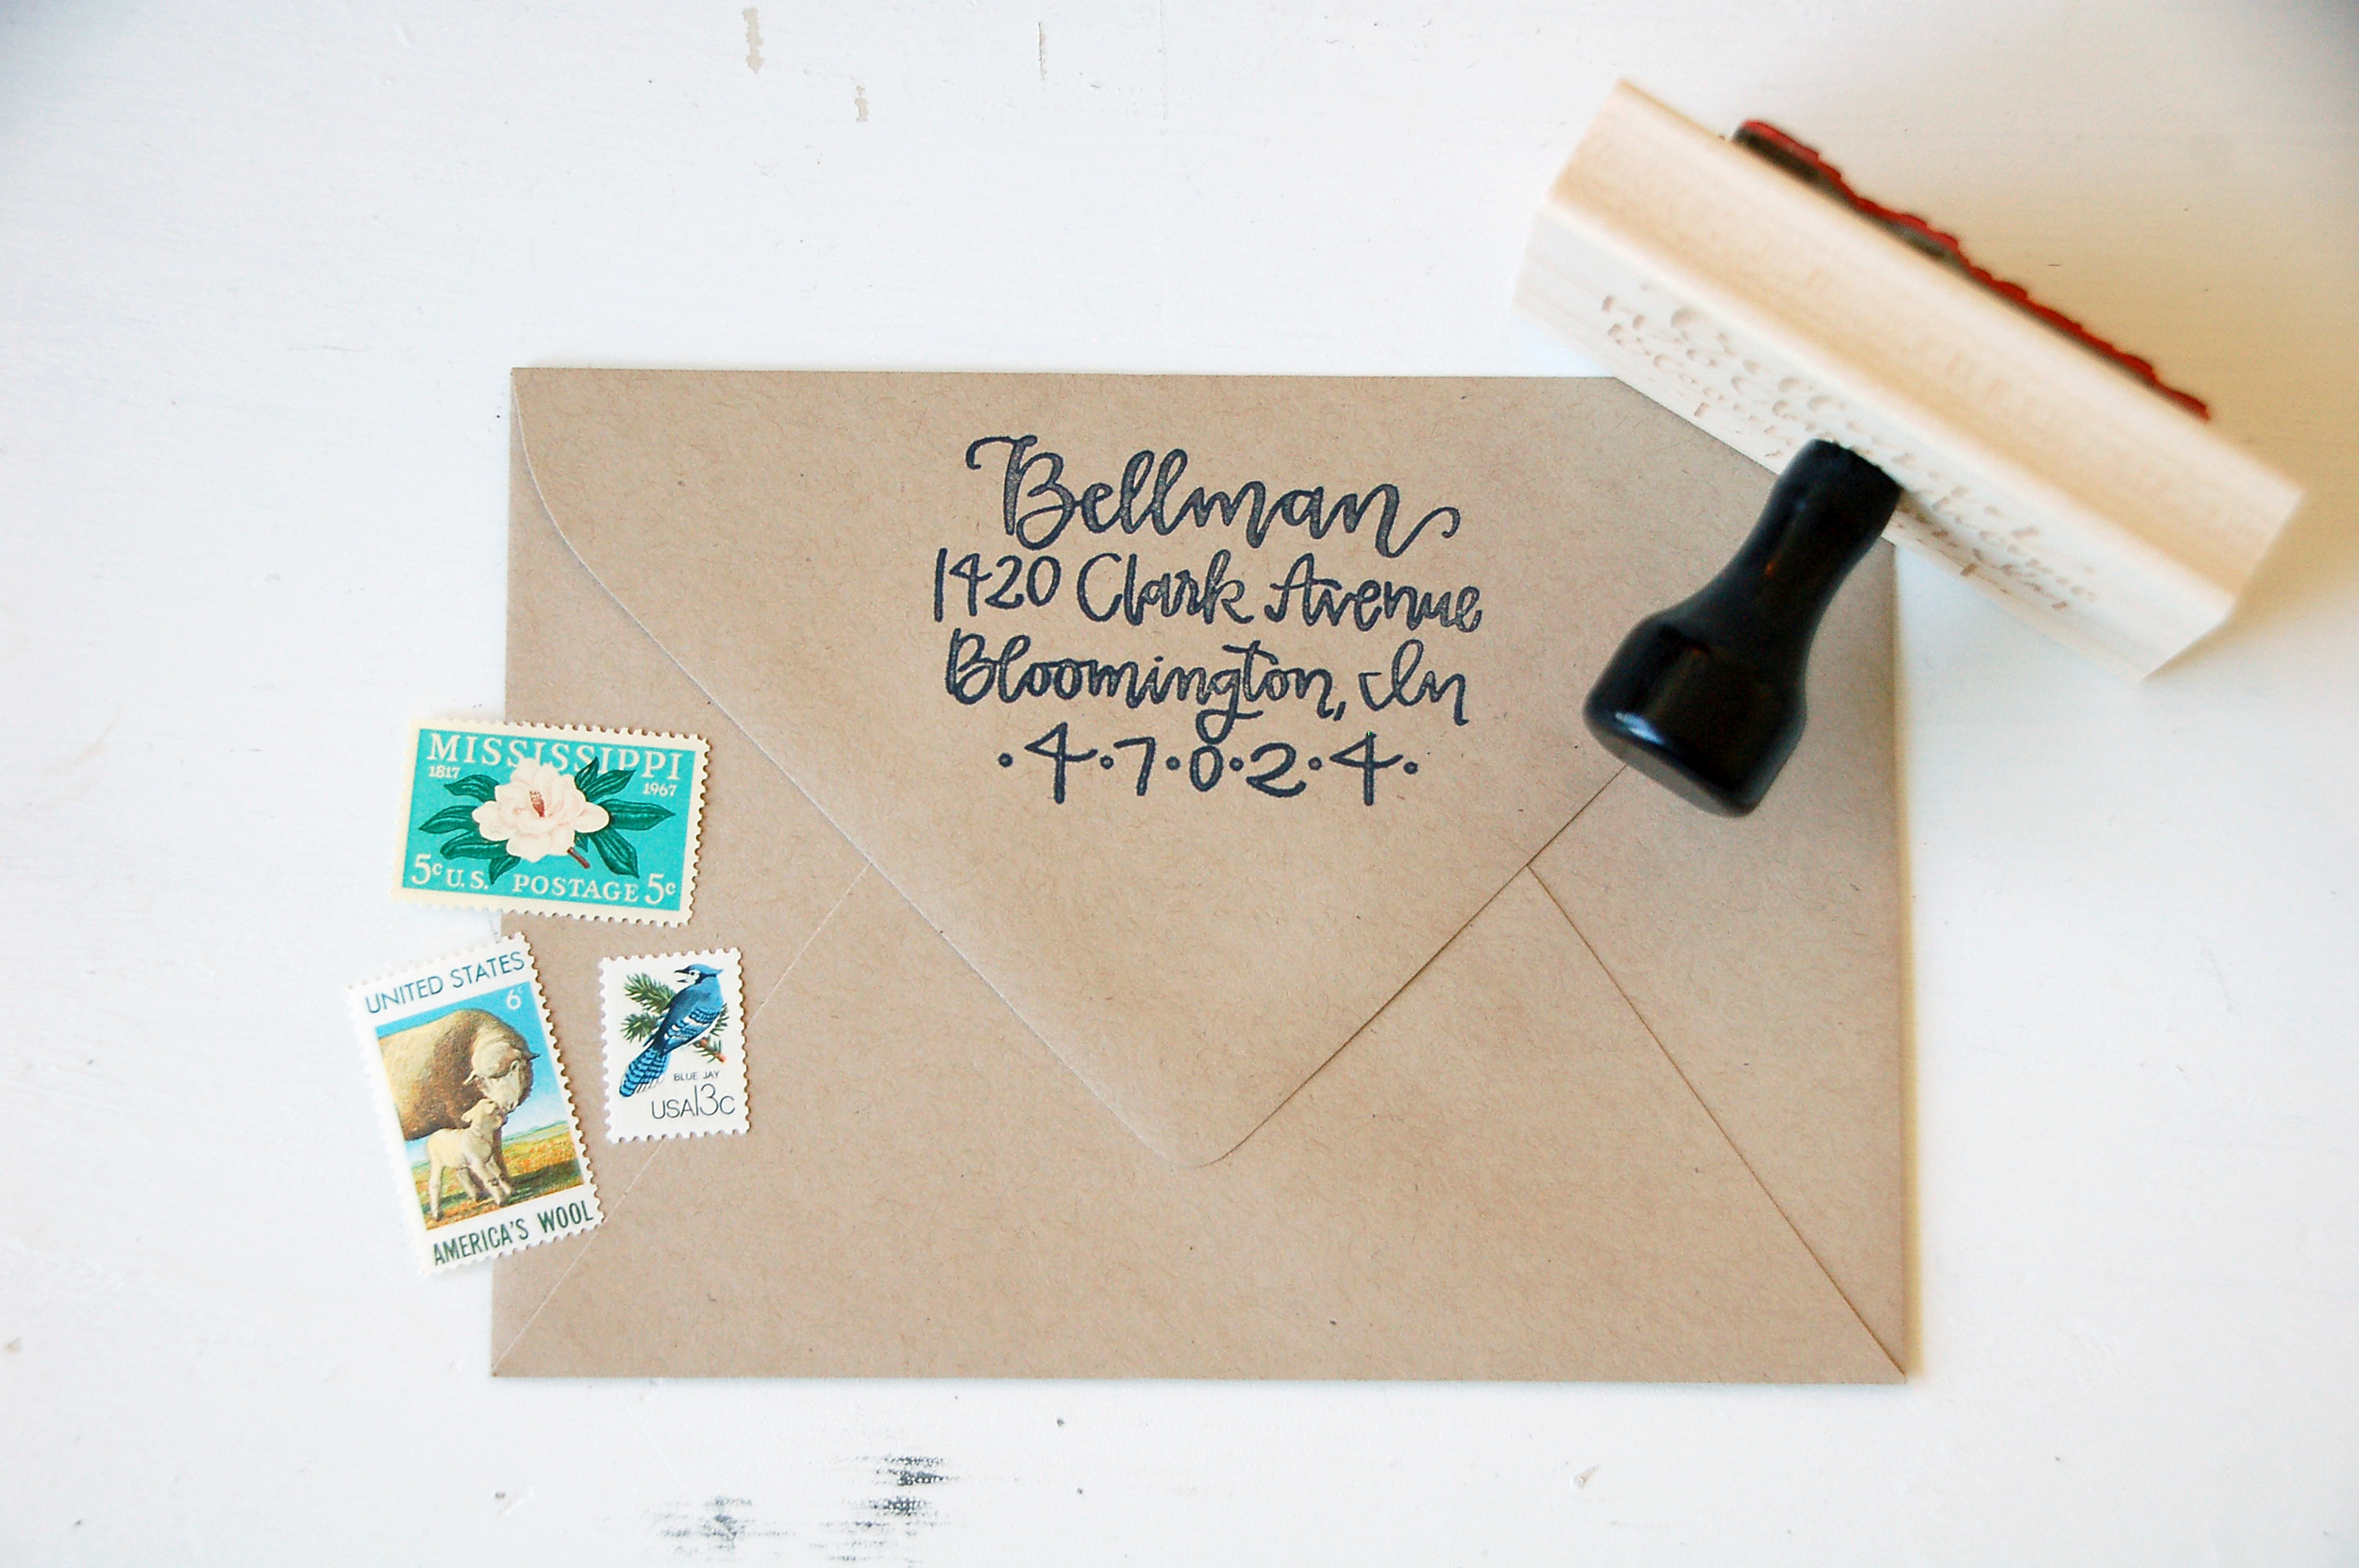 Bellman
1420 Clark Avenue
Bloomington, In
·4·7·0·2·4·
MISSISSIPPI
1817
1967
5c U.S. POSTAGE 5c
UNITED STATES
6c
AMERICA'S WOOL
BLUE JAY
USA13c